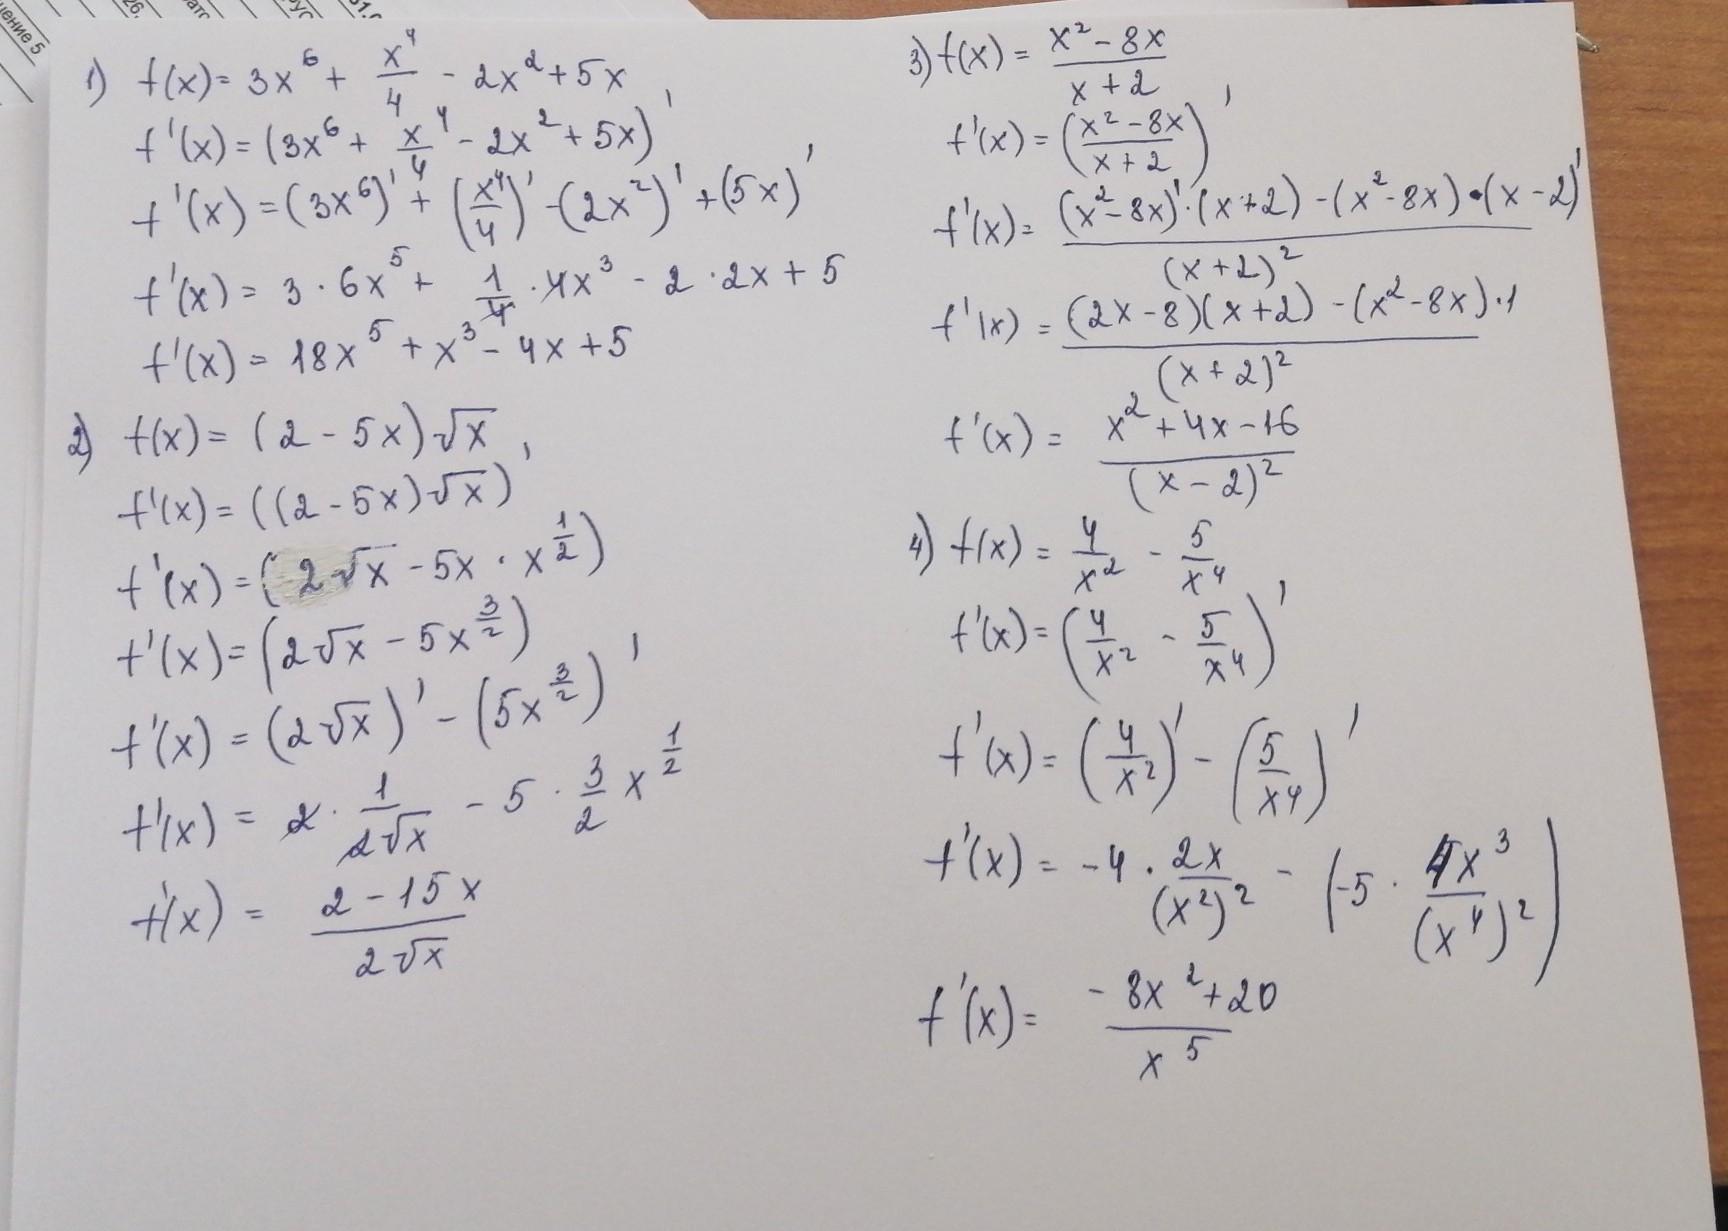 ение 5
26.
рус
31.
1) f(x) = 3x⁶ + x⁴/4 - 2x² + 5x
f'(x) = (3x⁶ + x⁴/4 - 2x² + 5x)'
f'(x) = (3x⁶)' + (x⁴/4)' - (2x²)' + (5x)'
f'(x) = 3 · 6x⁵ + 1/4 · 4x³ - 2 · 2x + 5
f'(x) = 18x⁵ + x³ - 4x + 5
2) f(x) = (2 - 5x)√x
f'(x) = ((2 - 5x)√x)'
f'(x) = (2√x - 5x · x^(1/2))
f'(x) = (2√x - 5x^(3/2))
f'(x) = (2√x)' - (5x^(3/2))'
f'(x) = 2 · 1/(2√x) - 5 · 3/2 x^(1/2)
f'(x) = (2 - 15x)/(2√x)
3) f(x) = (x² - 8x)/(x + 2)
f'(x) = ((x² - 8x)/(x + 2))'
f'(x) = ((x² - 8x)' · (x + 2) - (x² - 8x) · (x - 2)')/(x + 2)²
f'(x) = ((2x - 8)(x + 2) - (x² - 8x) · 1)/(x + 2)²
f'(x) = (x² + 4x - 16)/(x - 2)²
4) f(x) = 4/x² - 5/x⁴
f'(x) = (4/x² - 5/x⁴)'
f'(x) = (4/x²)' - (5/x⁴)'
f'(x) = -4 · 2x/(x²)² - (-5 · 4x³/(x⁴)²)
f'(x) = (-8x² + 20)/x⁵